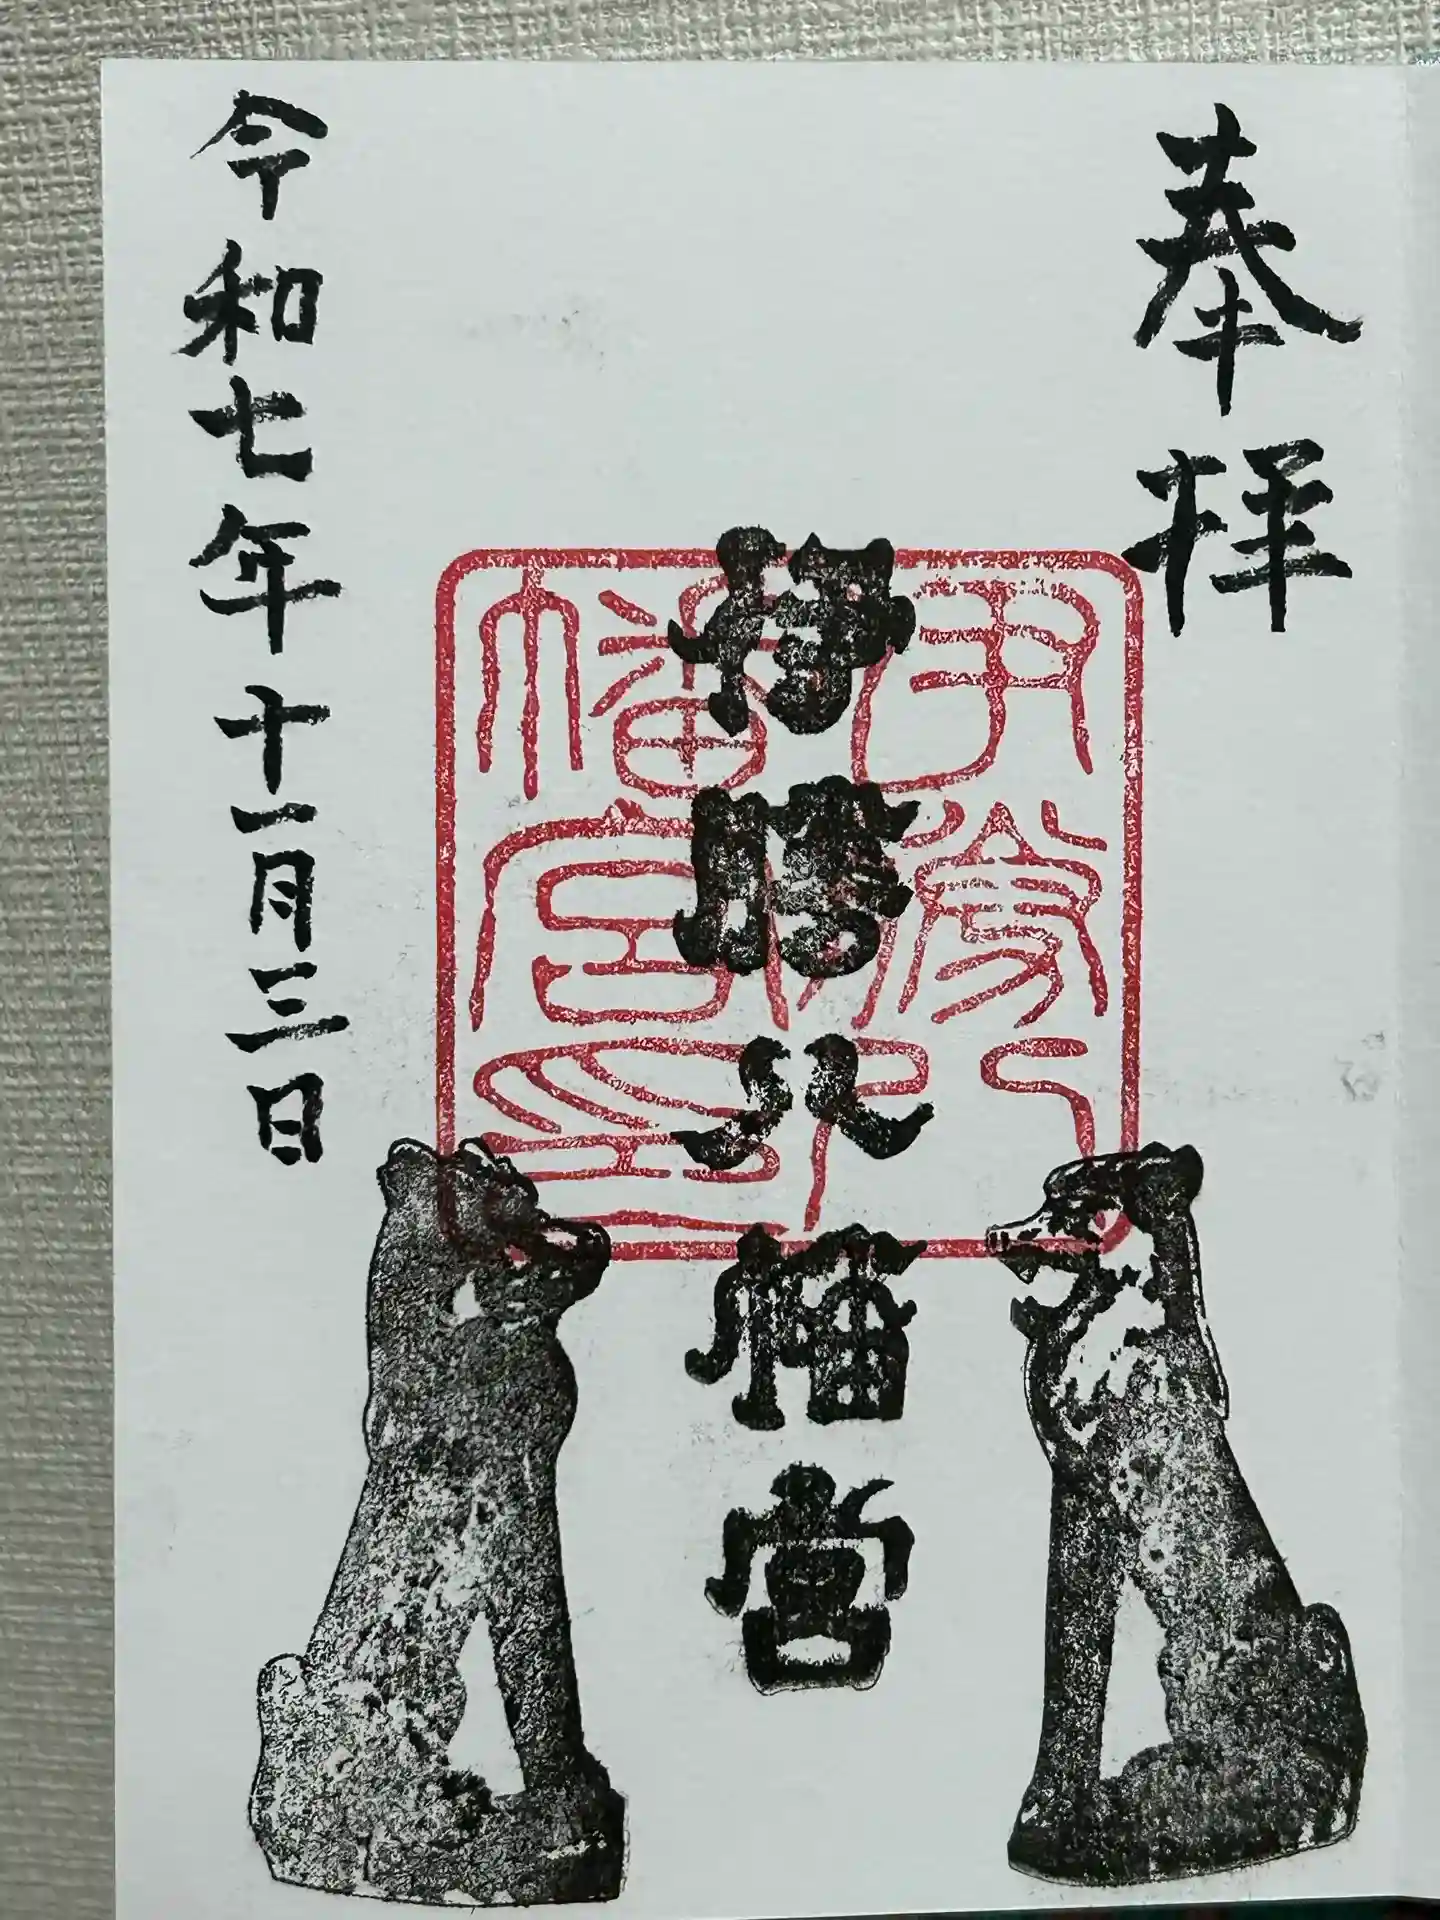 奉拝
伊勝八幡宮
伊勝八
幡宮印
令和七年十一月三日